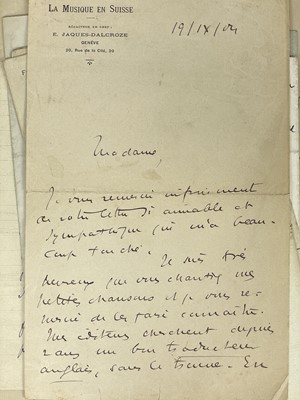 LA MUSIQUE EN SUISSE
RÉDACTEUR EN CHEF:
E. JAQUES-DALCROZE
GENÈVE
20, Rue de la Cité, 20
19/IX/04
Madame,
Je vous remercie infiniment
de votre lettre si aimable et
sympathique qui m'a beau-
coup touché. Je suis très
heureux que vous chantiez mes
petites chansons et je vous re-
mercie de les faire connaître.
Mes éditeurs cherchent depuis
2 ans un bon traducteur
anglais, sans le trouver. En